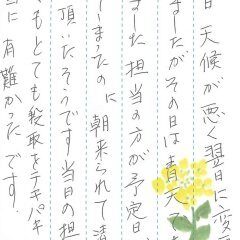 日 天候が悪く翌日に変
ましたがその日は青天で
ました担当の方が予定日
しまったのに 朝来られて清
頂いたそうです 当日の担
もとても段取をテキパキ
に 有難かったです。